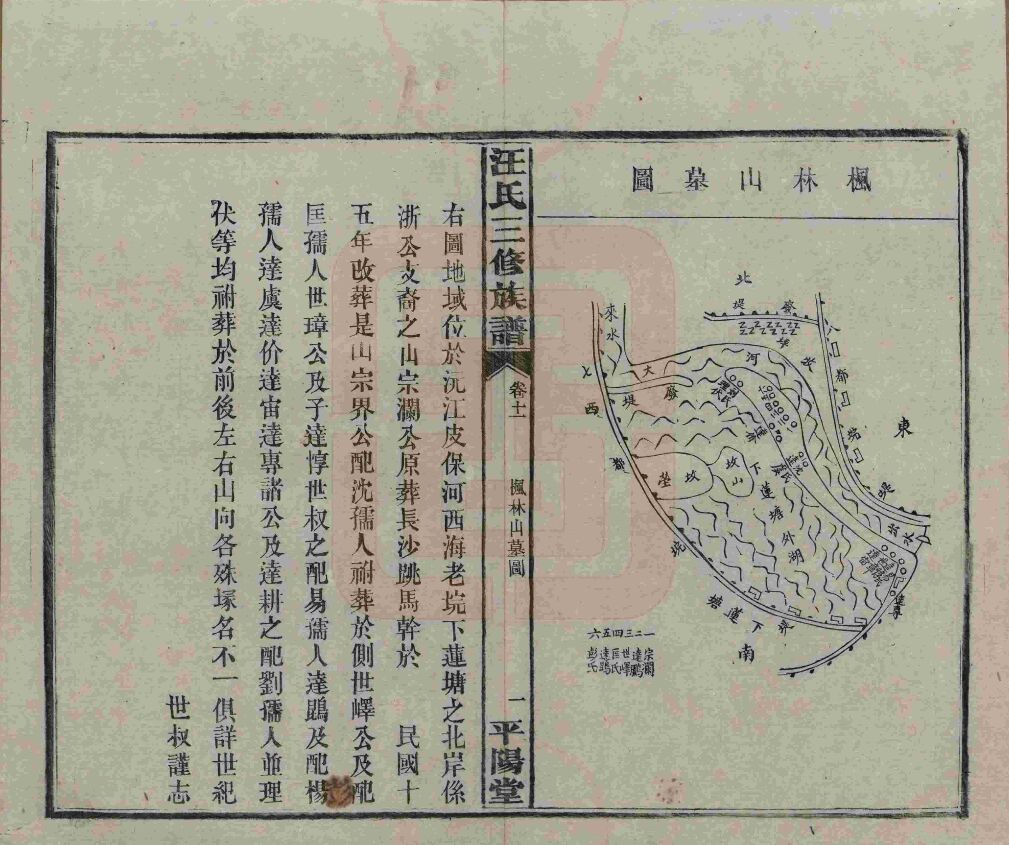 楓林山墓圖
北
東
西
南
來水
大
河
堤
下蓮塘外湖
坎山
出水
下蓮塘
一二三四五六
宗瀾
達鵬
世嶧
匡氏
達鵾
彭氏
汪氏三修族譜
卷十一
楓林山墓圖
一
平陽堂
右圖地域位於沅江皮保河西海老垸下蓮塘之北岸係
浙公支裔之山宗瀾公原葬長沙跳馬幹於 民國十
五年改葬是山宗界公配沈孺人祔葬於側世嶧公及配
匡孺人世璋公及子達惇世叔之配易孺人達鵾及配楊
孺人達虞達价達宙達專諸公及達耕之配劉孺人並理
伏等均祔葬於前後左右山向各殊塚名不一俱詳世紀
世叔謹志